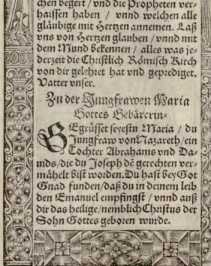 chen begert / vnd die Propheten ver-
haissen haben / vnnd welchen alle
gläubige mit hertzen annemen. Laß
vns von hertzen glauben / vnnd mit
dem Mund bekennen / alles was je-
derzeit die Christlich Römisch Kirch
von dir gelehret hat vnd geprediget.
Vatter vnser.
Zu der Jungfrawen Maria
Gottes Gebärerin.
GEgrüsset seyest in Maria / du
Jungfraw von Nazareth / ein
Tochter Abrahams vnd Da-
uids / die du Joseph dē gerechten ver-
mählelt bist worden. Du hast bey Got
Gnad funden / daß du in deinem leib
den Emanuel empfingst / vnnd auß
dir das heilige / nemblich Christus der
Sohn Gottes geboren wurde.